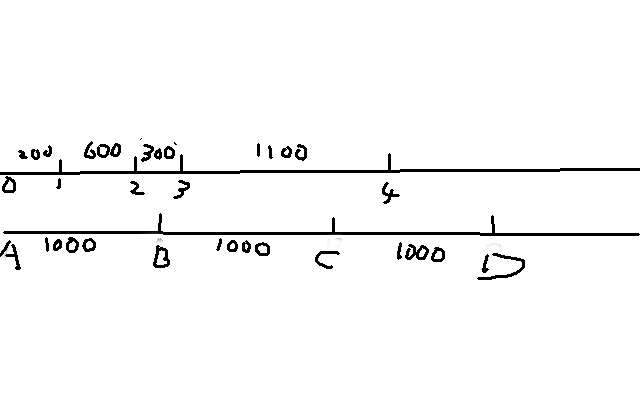 200 600 300 1100
0 1 2 3 4
1000 1000 1000
A B C D